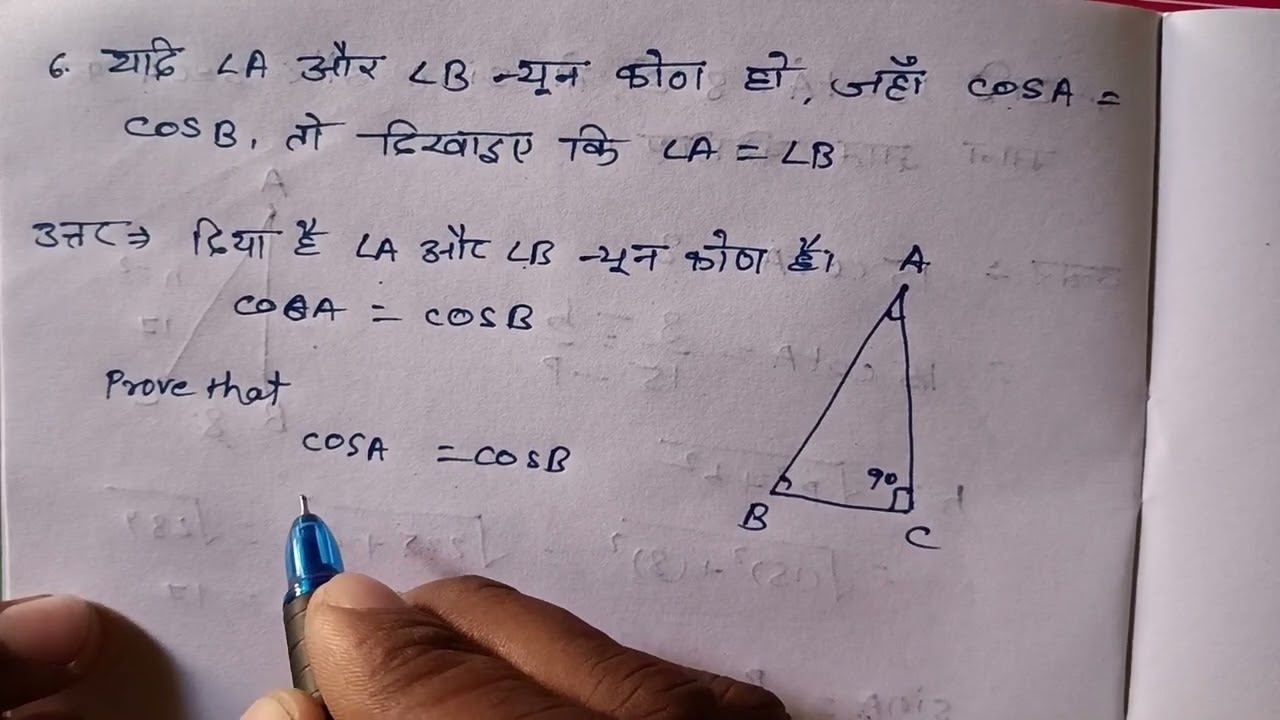 6. यदि ∠A और ∠B न्यून कोण हो, जहाँ COSA =
COSB, तो दिखाइए कि ∠A = ∠B
उत्तर⇒ दिया है ∠A और ∠B न्यून कोण है।
COSA = COSB
Prove that
COSA = COSB
A
90
B
C